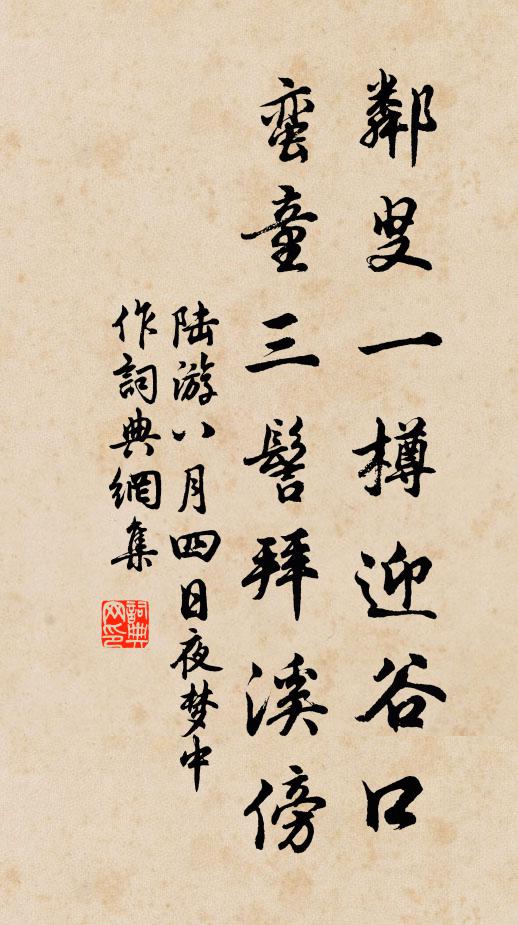 鄰叟一樽迎谷口
蛮童三髻拜溪傍
陆游八月四日夜梦中
作詞典網集
詞典网印